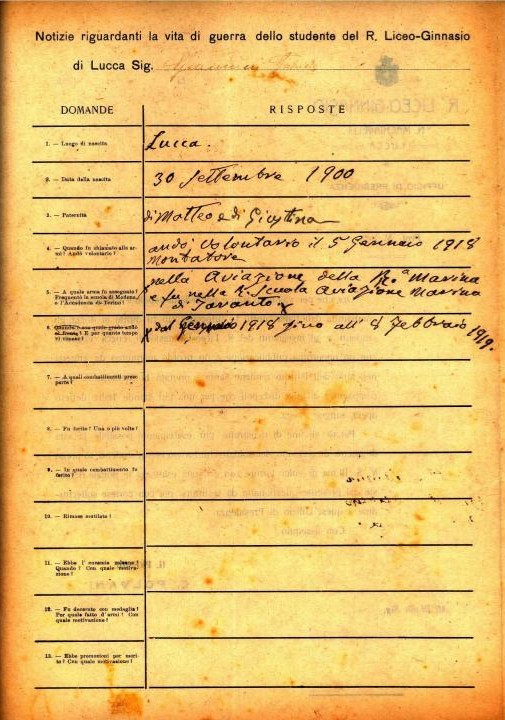 Notizie riguardanti la vita di guerra dello studente del R. Liceo-Ginnasio
di Lucca Sig.
DOMANDE
RISPOSTE
1. — Luogo di nascita
Lucca.
2. — Data della nascita
30 Settembre 1900
3. — Paternità
di Matteo e di Giustina
4. — Quando fu chiamato alle armi? Andò volontario?
andò volontario il 5 Gennaio 1918
Montatore
5. — A quale arma fu assegnato?
Frequentò la scuola di Modena,
o l'Accademia di Torino?
nella Aviazione della Rea Marina
e fu nella R. Scuola Aviazione Marina
di Taranto
6. — Quando e con quale grado andò
al fronte? E per quanto tempo
vi rimase?
dal Gennaio 1918 fino all' 8 Febbraio 1919.
7. — A quali combattimenti prese
parte?
8. — Fu ferito? Una o più volte?
9. — In quale combattimento fu
ferito?
10. — Rimase mutilato?
11. — Ebbe l'encomio solenne?
Quando? Con quale motivazione?
12. — Fu decorato con medaglia?
Per quale fatto d'armi? Con
quale motivazione?
13. — Ebbe promozioni per merito? Con quale motivazione?